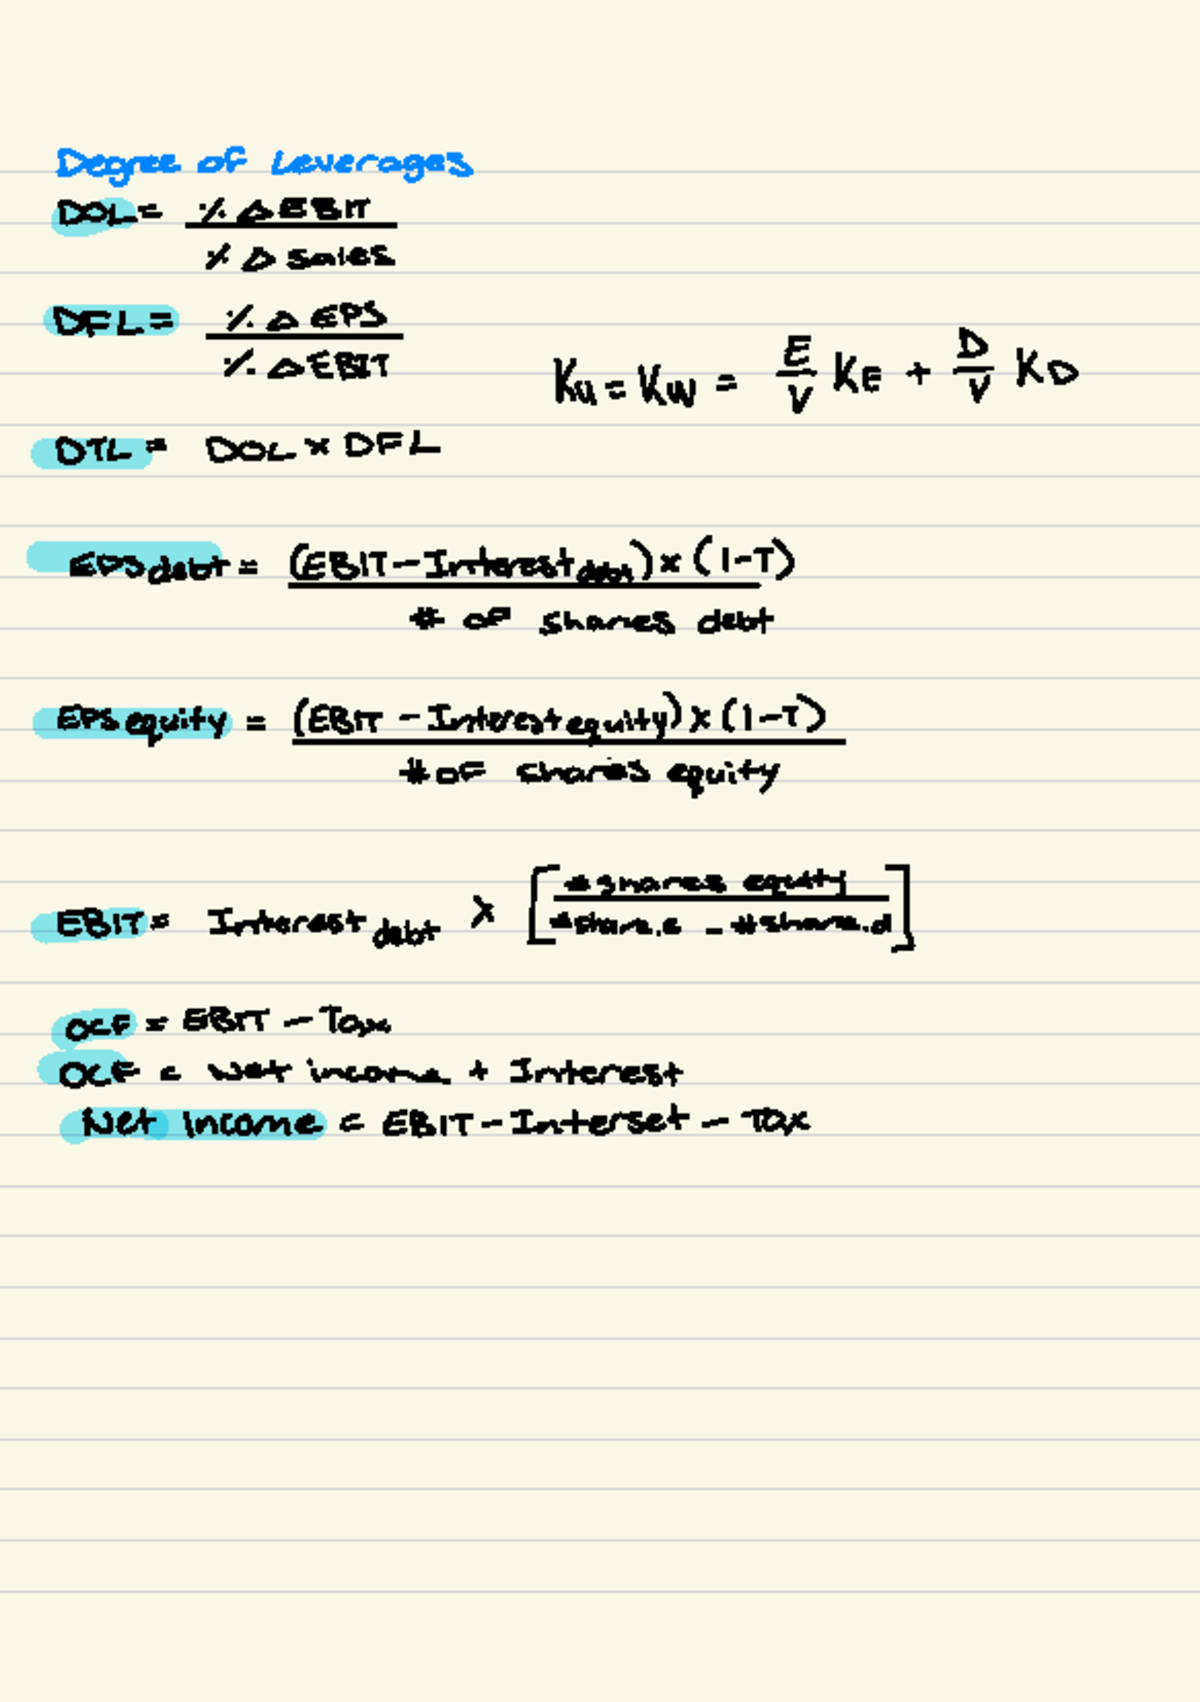 Degree of Leverages
DOL = % Δ EBIT / % Δ Sales
DFL = % Δ EPS / % Δ EBIT
Ku = Kw = E/V KE + D/V KD
DTL = DOL × DFL
EPS debt = (EBIT - Interest debt) × (1-T) / # of shares debt
EPS equity = (EBIT - Interest equity) × (1-T) / # of shares equity
EBIT = Interest debt × [# shares equity / #share.e - #share.d]
OCF = EBIT - Tax
OCF = Net income + Interest
Net Income = EBIT - Interset - Tax